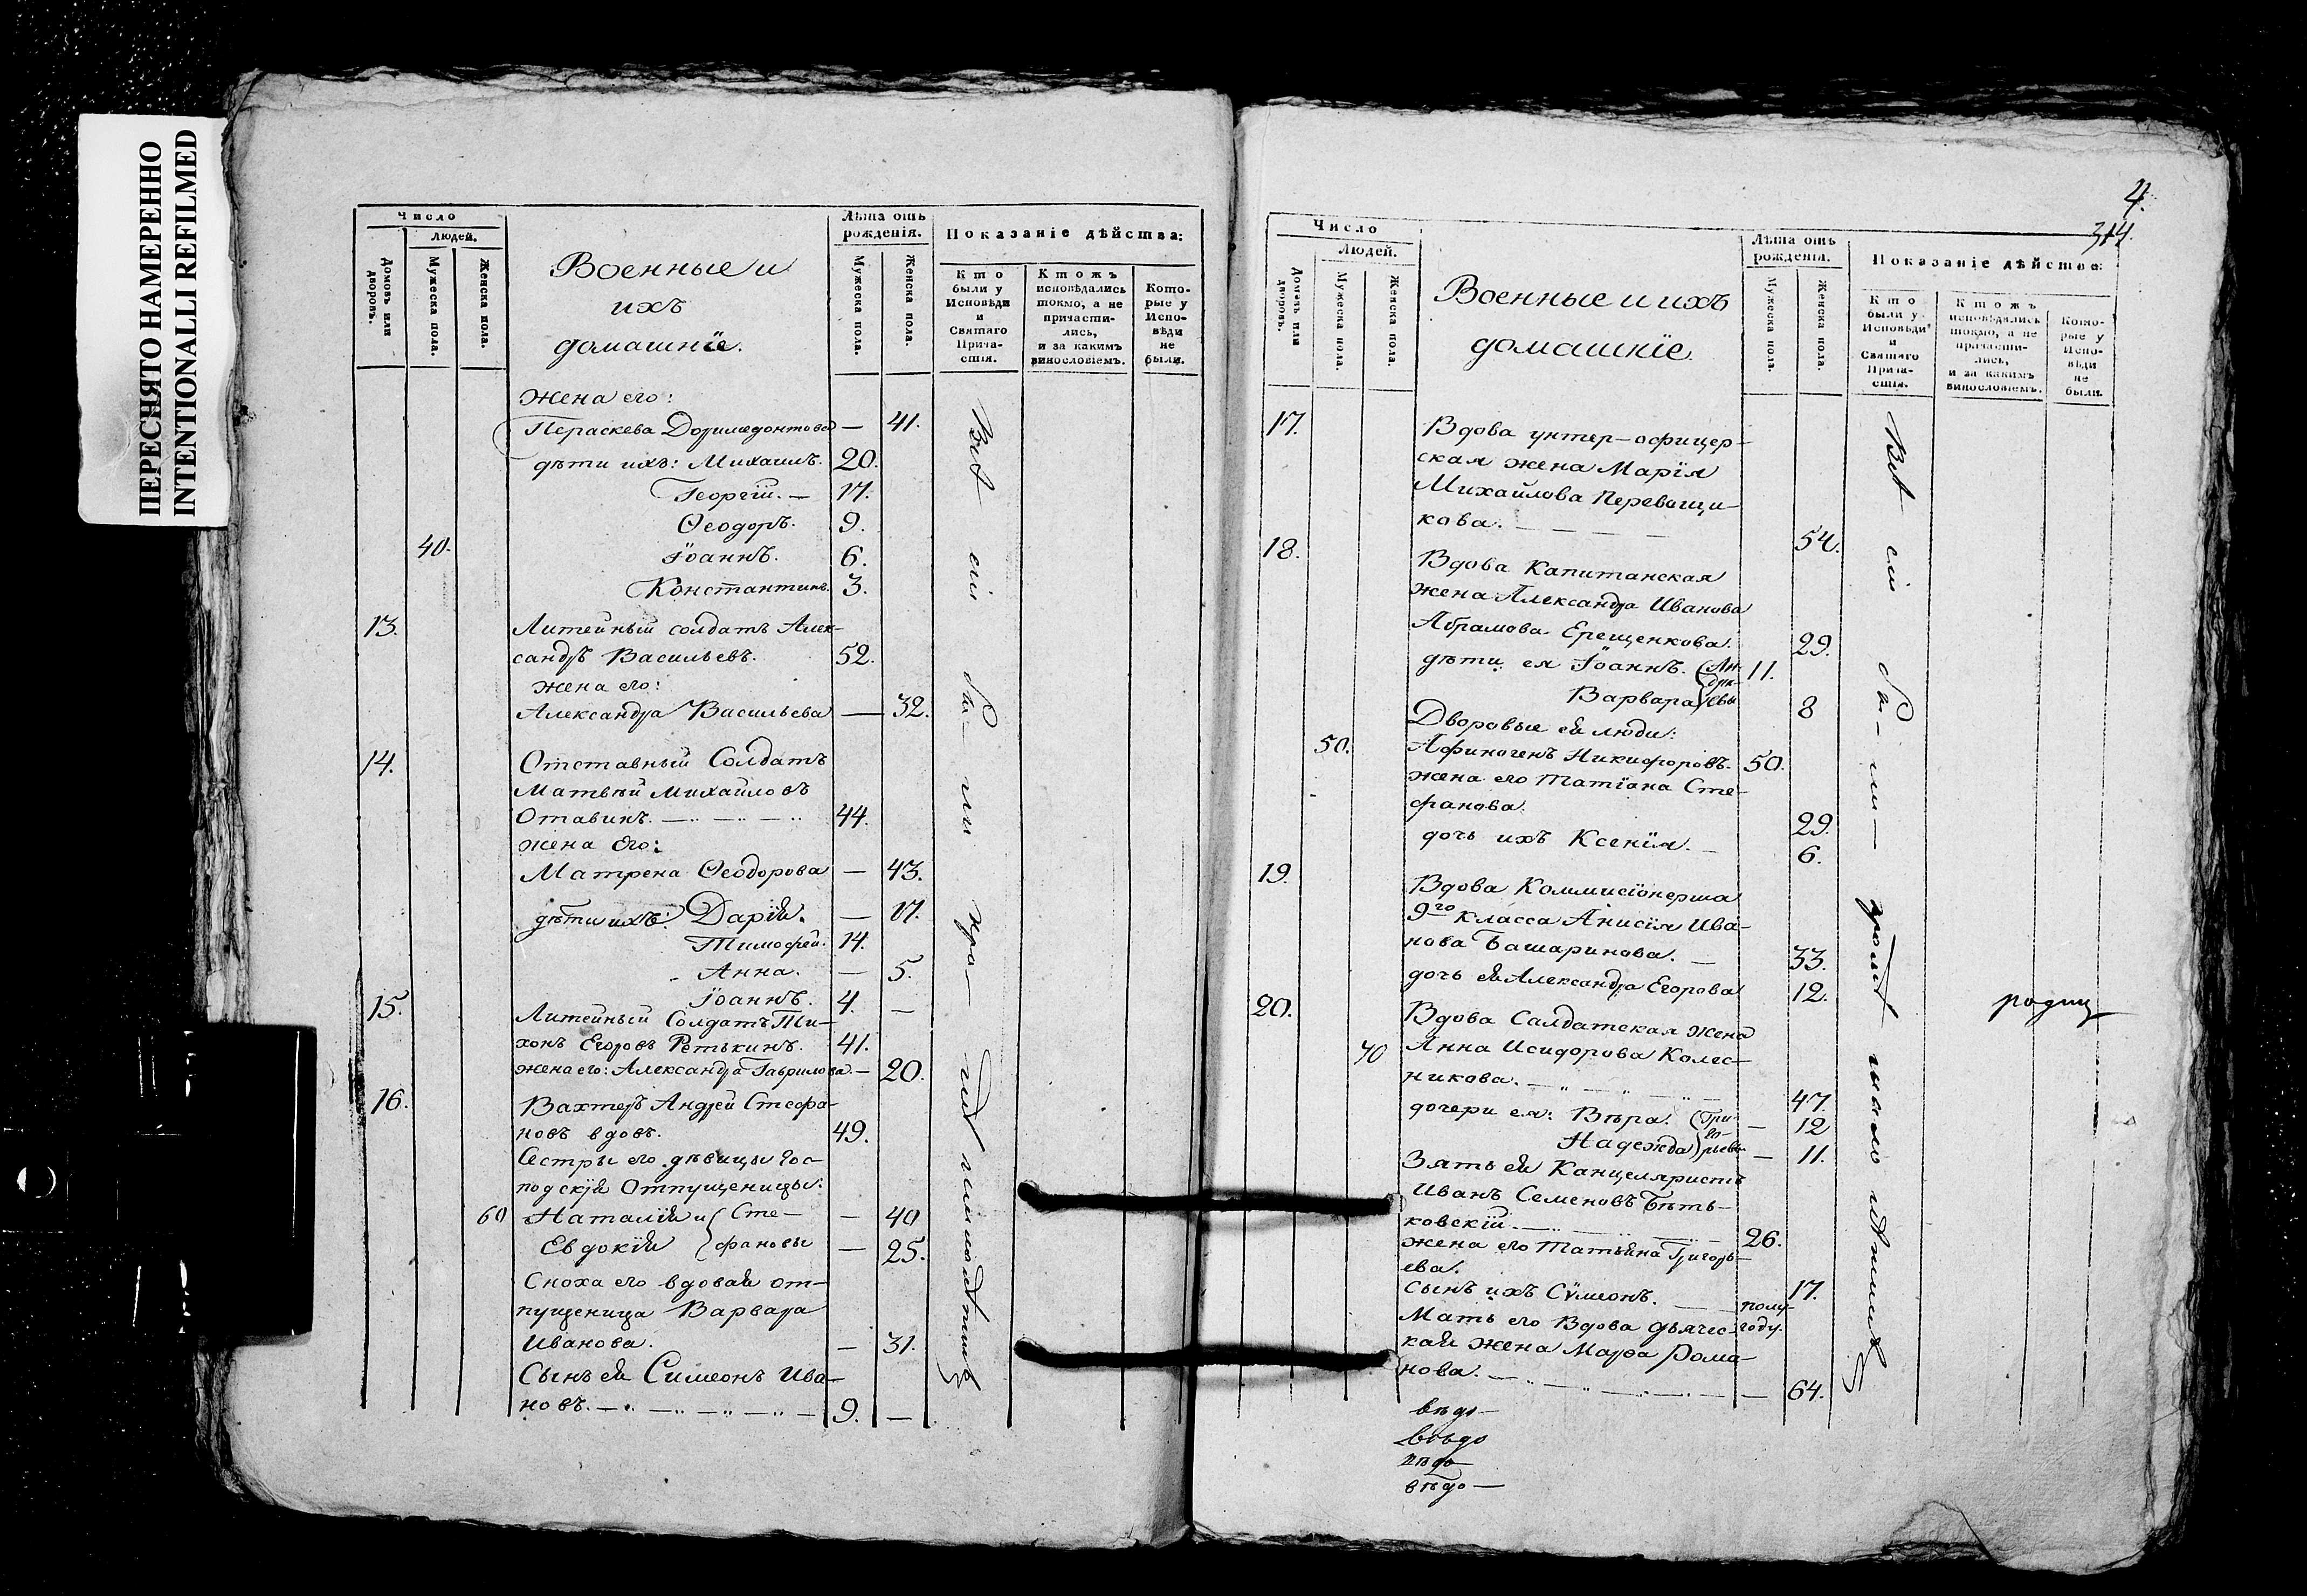 ПЕРЕСНЯТО НАМЕРЕННО
INTENTIONALLI REFILMED
Число
людей.
Домовъ или дворовъ.
Мужеска пола.
Женска пола.
Военные и
ихъ
домашнїе.
Лѣта отъ
рожденія.
Мужеска пола.
Женска пола.
Показаніе дѣйства:
Кто
были у
Исповѣди
и
Святаго
Прича-
стія.
Ктожъ
исповѣдались
токмо, а не
причасти-
лись,
и за какимъ
винословіемъ.
Кото-
рые у
Испо-
вѣди
не
были.
жена его:
Параскева — 41.
дѣти ихъ: Михаилъ. 20.
Георгїй. — 17.
Ѳеодоръ. 9.
40. Їоаннъ. 6.
Константинъ. 3.
13. Литейный солдатъ Алек-
сандръ Васильевъ. 52.
жена его:
Александра Васильева — 32.
14. Отставный Солдатъ
Матвѣй Михайловъ
Отавинъ. 44.
жена его:
Матрена Ѳеодорова — 43.
дѣти ихъ: Дарїя. — 17.
Тимофей. 14.
Анна. — 5.
Їоаннъ. 4. —
15. Литейный Солдатъ Ти-
хонъ Егоровъ Ретькинъ. 41.
жена его: Александра Гаврилова. — 20.
16. Вахтеръ Андрей Стефа-
новъ вдовъ. 49.
Сестры его дѣвицы Гос-
подскїя Отпущеницы:
60 Наталїя и Сте- — 40
Евдокїя фановы — 25.
Сноха его вдовая от-
пущеница Варвара
Иванова. — 31.
Сынъ ея Симеонъ Ива-
новъ. 9. —
Всѣ сіи бы-ли
4.
314.
Число
Людей.
Домовъ или дворовъ.
Мужеска пола.
Женска пола.
Военные и ихъ
домашнїе.
Лѣта отъ
рожденія.
Мужеска пола.
Женска пола.
Показаніе дѣйства:
Кто
были у
Исповѣди
и
Святаго
Прича-
стія.
Ктожъ
исповѣдались
токмо, а не
причасти-
лись,
и за какимъ
винословіемъ.
Кото-
рые у
Испо-
вѣди
не
были.
17. Вдова унтер-офицер-
ская жена Марїя
Михайлова Перевощи-
кова. 54.
18. Вдова Капитанская
жена Александра Иванова
Абрамова Ерещенкова. 29.
дѣти ея Їоаннъ. 11.
Варвара 8
Дворовые ея люди:
50. Афиногенъ Никифоровъ. 50.
жена его Татїана Сте-
фанова. 29.
дочь ихъ Ксенїя. 6.
19. Вдова Коммисїонерша
9го класса Анисїя Ива-
нова Башаринова. 33.
дочь ея Александра Егорова 12.
20. Вдова Салдатская жена
70 Анна Исидорова Колес-
никова. 47.
дочери ея: Вѣра. Гри- — 12
Надежда го-рьевы — 11.
Зять ея Канцеляристъ
Иванъ Семеновъ Бѣть-
ковскїй. 26.
жена его Татьяна Григорь-
ева. 17.
сынъ ихъ Сѵмеонъ. полу-
году.
Мать его Вдова дьячес-
кая жена Марѳа Рома-
нова. — 64.
Всѣ сіи бы-ли
вѣдо-
вѣдо
вѣдо-
вѣдо-